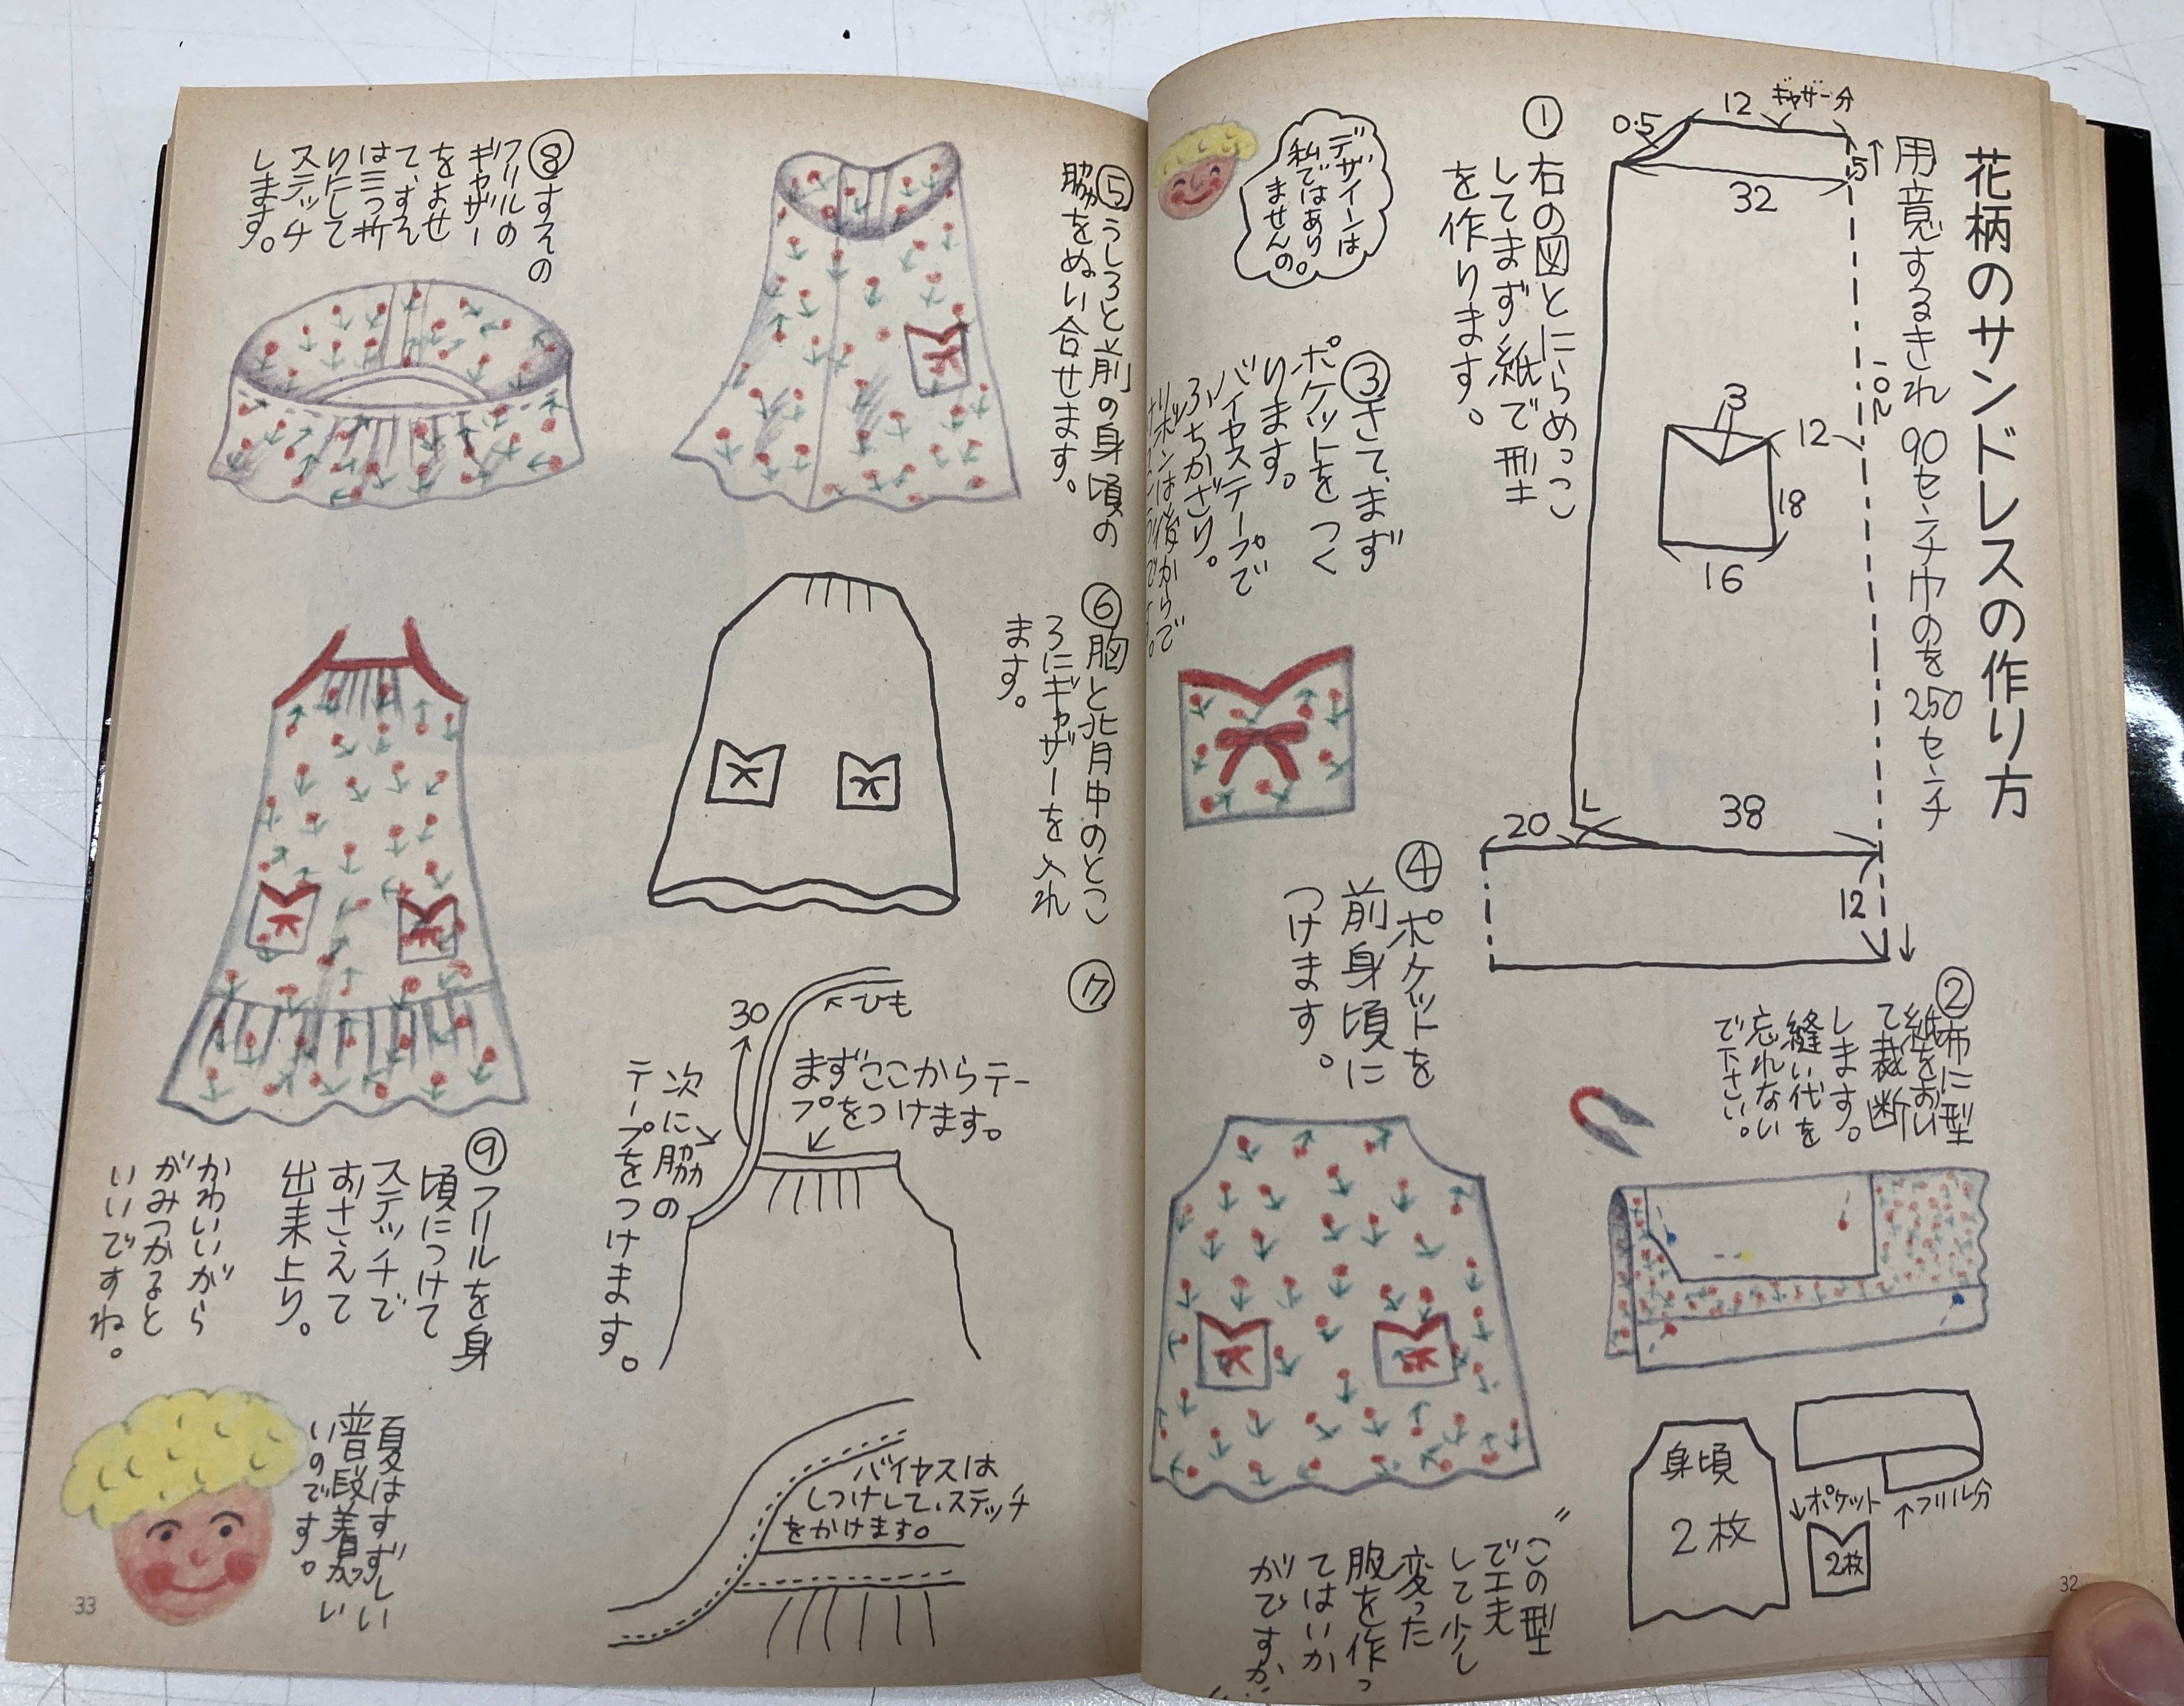 花柄のサンドレスの作り方
用意するきれ 90センチ巾のを250センチ
12
ギャザー分
0.5
5
32
102
3
12
18
16
20
38
12
①右の図とにらめっこ
してまず紙で型
を作ります。
デザインは
私ではあり
ませんの。
②布に型
紙をおい
て裁断
します。
縫い代を
忘れない
で下さい。
③さて、まず
ポケットをつく
ります。
バイヤステープで
ふちかざり。
リボンは後からで
④ポケットを
前身頃に
つけます。
身頃
2枚
↓ポケット
2枚
↑フリル分
"この型
で工夫
して少し
変った
服を作っ
てはいか
がですか"
32
⑤うしろと前の身頃の
脇をぬい合せます。
⑥胸と背中のとこ
ろにギャザーを入れ
ます。
⑦
30
←ひも
まずここからテー
プをつけます。
次に脇の
テープをつけます。
バイヤスは
しつけして、ステッチ
をかけます。
⑧すその
フリルの
ギャザー
をよせ
て、すそ
は三つ折
りにして
ステッチ
します。
⑨フリルを身
頃につけて
ステッチで
おさえて
出来上り。
かわいいがら
がみつかると
いいですね。
夏はすずしい
普段着がい
いのです。
33